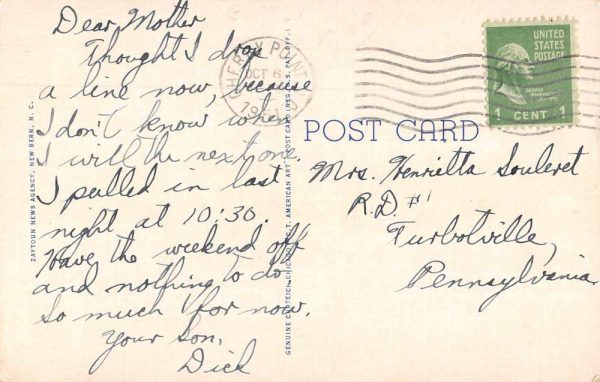 Dear Mother
Thought I drop
a line now, because
I don't know when
I will the next one.
I pulled in last
night at 10:30.
Have the weekend off
and nothing to do
so much for now.
Your son,
Dick
POST CARD
Mrs. Henrietta Souleret
R.D. #1
Turbotville,
Pennsylvania
CHERRY POINT
OCT 6
UNITED
STATES
POSTAGE
1 CENT 1
ZAYTOUN NEWS AGENCY, NEW BERN, N. C.
GENUINE CURTEICH-CHICAGO "C.T. AMERICAN ART" POST CARD (REG. U.S. PAT. OFF.)